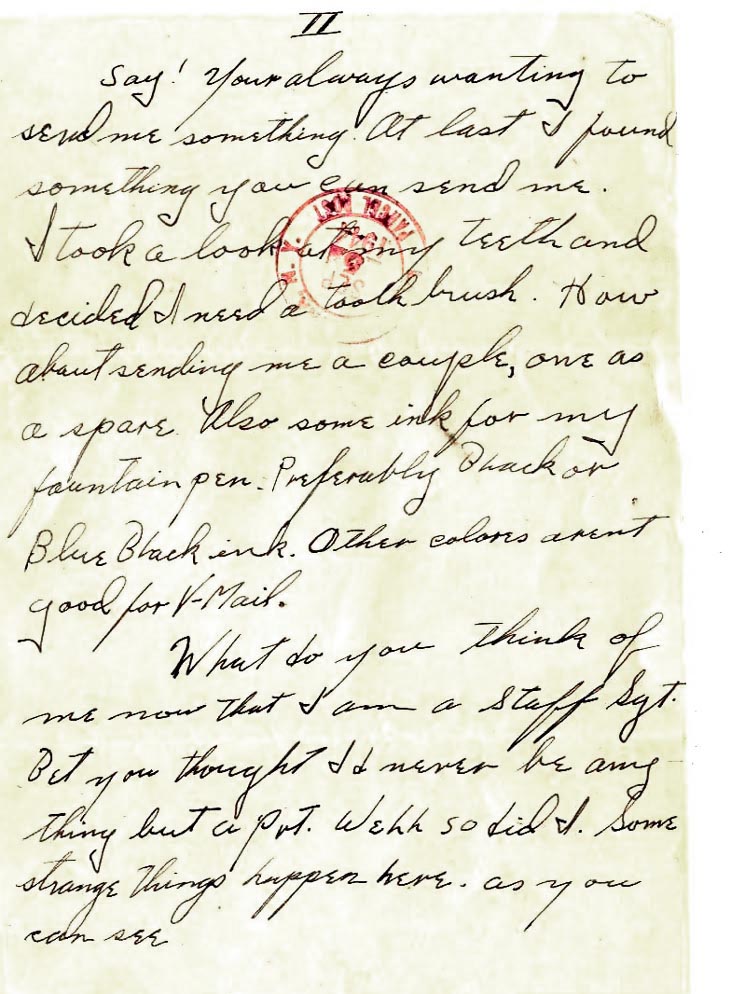 II
Say! Your always wanting to
send me something. At last I found
something you can send me.
I took a look at my teeth and
decided I need a tooth brush. How
about sending me a couple, one as
a spare. Also some ink for my
fountain pen. Preferably Black or
Blue Black ink. Other colores arent
good for V-Mail.
What do you think of
me now that I am a Staff Sgt.
Bet you thought Id never be any
thing but a Pvt. Well so did I. Some
strange things happen here. as you
can see
PARCEL POST
SEP
N. Y.